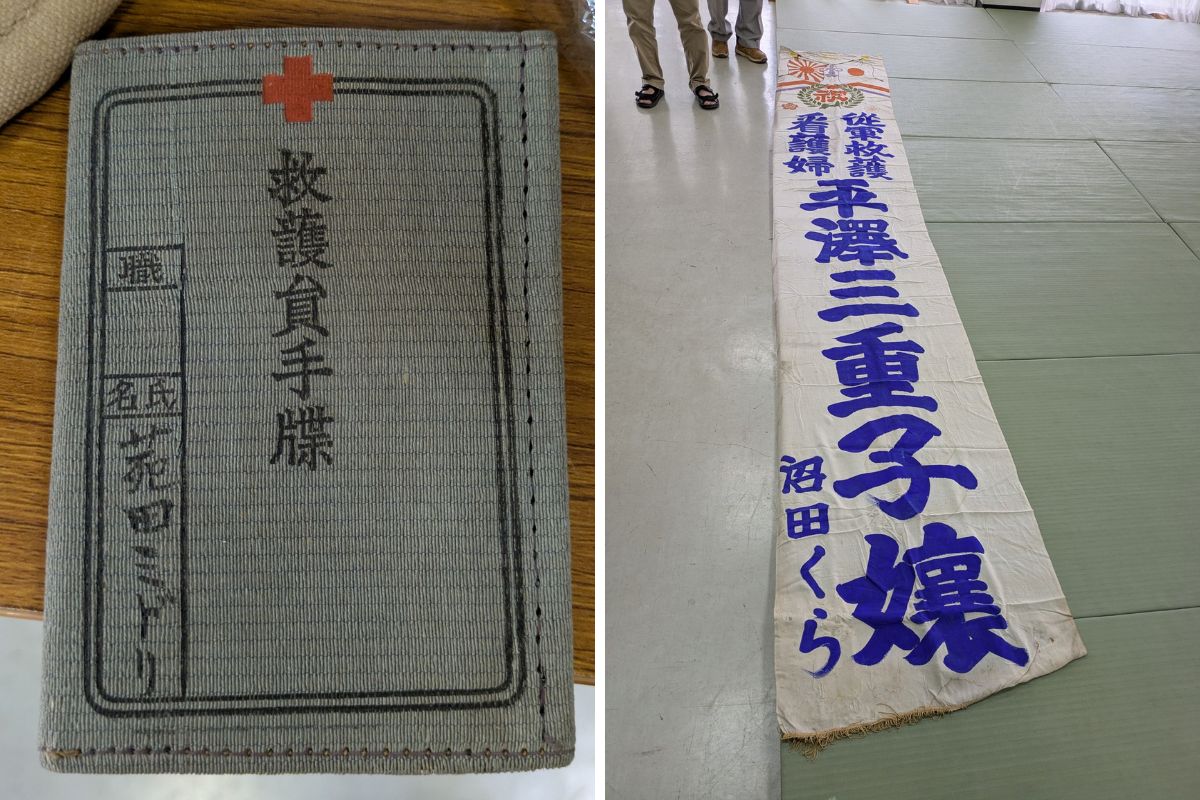 救護員手牒
職
氏名
苑田ミドリ
祝
従軍救護
看護婦
平澤三重子嬢
沼田くら